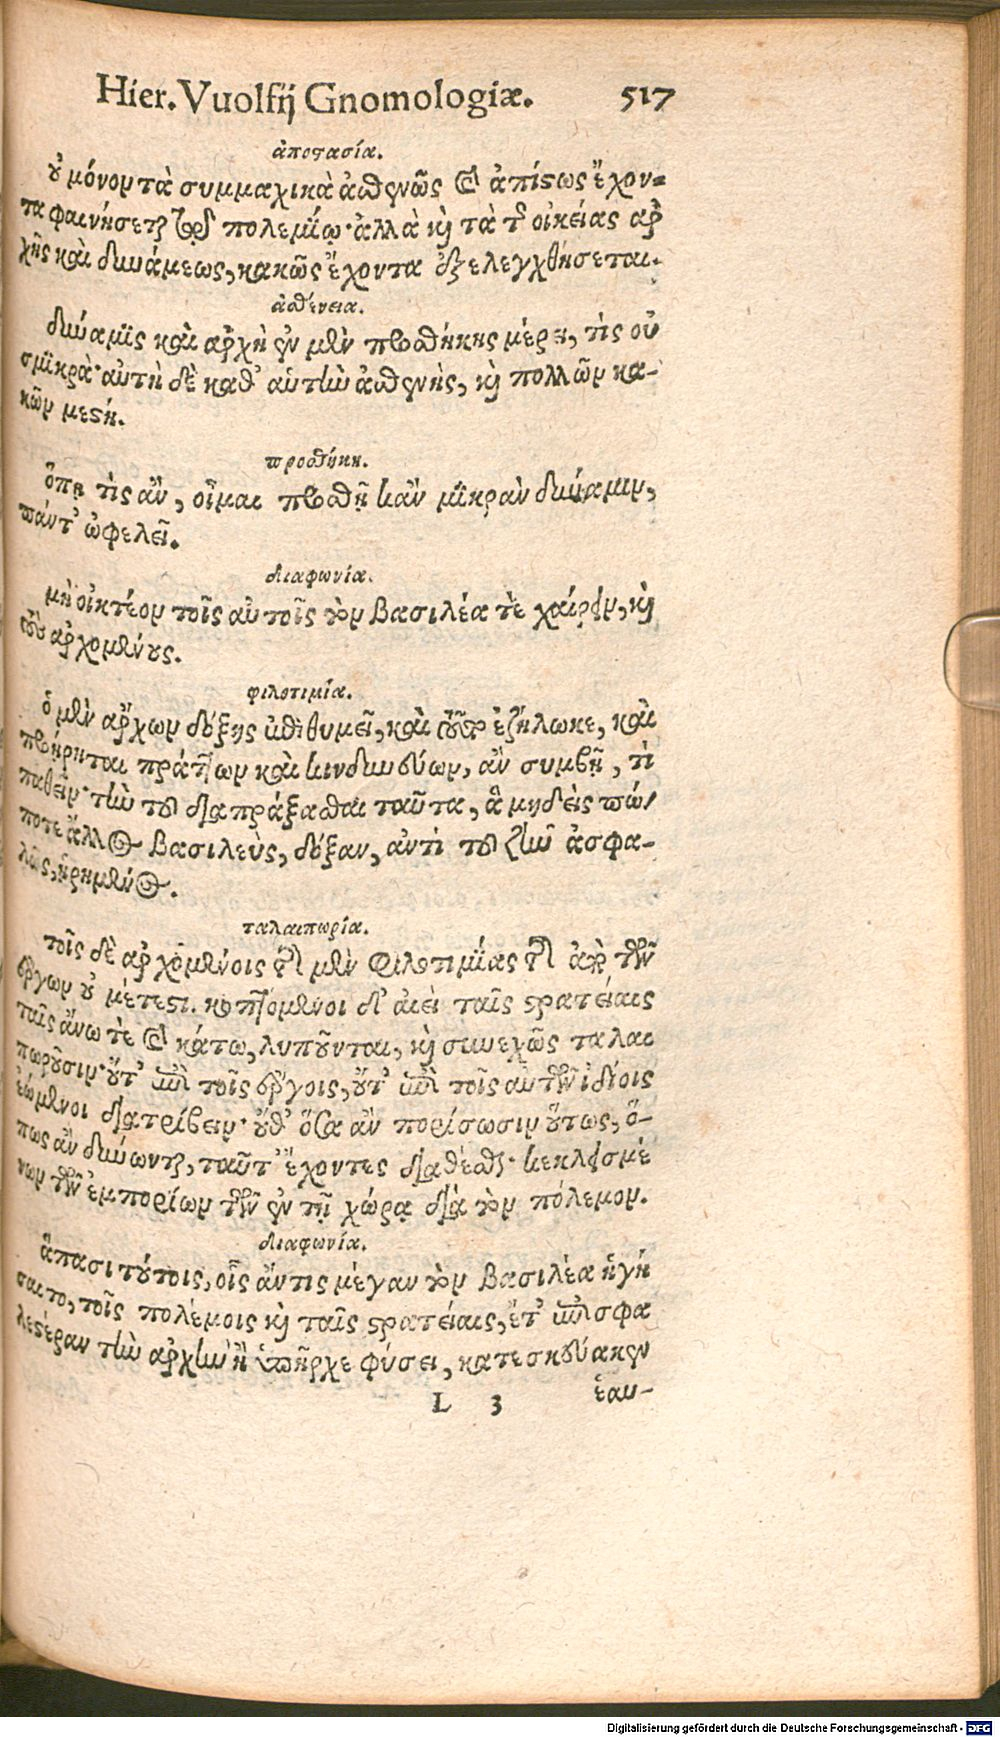 Hier. Vuolfij Gnomologiæ. 517
ἀποστασία.
οὐ μόνον τὰ συμμαχικὰ ἀσθενῶς καὶ ἀπίστως ἔχον-
τα φαινήσεται τῷ πολεμίῳ· ἀλλὰ καὶ τὰ τῆς οἰκείας ἀρ
χῆς καὶ δυνάμεως, κακῶς ἔχοντα ἐξελεγχθήσεται.
ἀσθένεια.
δύναμις καὶ ἀρχὴ ἐν μὲν προσθήκης μέρει, τὶς οὐ
σμικρὰ· αὐτὴ δὲ καθ᾽ αὑτὴν ἀσθενὴς, καὶ πολλῶν κα-
κῶν μεστή.
προσθήκη.
ὅπῃ τὶς ἂν, οἶμαι προσθῇ κἂν μικρὰν δύναμιν,
πάντ᾽ ὠφελεῖ.
διαφωνία.
μὴ οἰκτέον τοῖς αὐτοῖς τὸν βασιλέα τὲ χαίρειν, καὶ
τοὺς ἀρχομένους.
φιλοτιμία.
ὁ μὲν ἄρχων δόξης ἐπιθυμεῖ, καὶ τοῦτο ἐζήλωκε, καὶ
προῄρηται πράττων καὶ κινδυνεύων, ἂν συμβῇ, τὶ
παθεῖν· τὴν τοῦ διαπράξασθαι ταῦτα, ἃ μηδεὶς πώ/
ποτε ἄλλος βασιλεὺς, δόξαν, ἀντὶ τοῦ ζῆν ἀσφα-
λῶς, ᾑρημένος.
ταλαιπωρία.
τοῖς δὲ ἀρχομένοις τῆς μὲν φιλοτιμίας τῆς ἀπὸ τῶν
ἔργων οὐ μέτεστι. κοπτόμενοι δ᾽ αἰεὶ ταῖς στρατείαις
ταῖς ἄνω τὲ καὶ κάτω, λυποῦνται, καὶ συνεχῶς ταλαι
πωροῦσιν· οὔτ᾽ ἐπὶ τοῖς ἔργοις, οὔτ᾽ ἐπὶ τοῖς αὑτῶν ἰδίοις
ἐώμενοι διατρίβειν· οὔθ᾽ ὅσα ἂν πορίσωσιν οὕτως, ὅ-
πως ἂν δύνωνται, ταῦτ᾽ ἔχοντες διαθέσθαι· κεκλεισμέ
νων τῶν ἐμπορίων τῶν ἐν τῇ χώρᾳ διὰ τὸν πόλεμον.
διαφωνία.
ἅπασι τούτοις, οἷς ἄν τις μέγαν τὸν βασιλέα ἡγή
σαιτο, τοῖς πολέμοις καὶ ταῖς στρατείαις, ἔτ᾽ ἐπισφα
λεστέραν τὴν ἀρχὴν ἢ ὑπῆρχε φύσει, κατεσκεύακεν
L 3 ἑαυ-
Digitalisierung gefördert durch die Deutsche Forschungsgemeinschaft - DFG